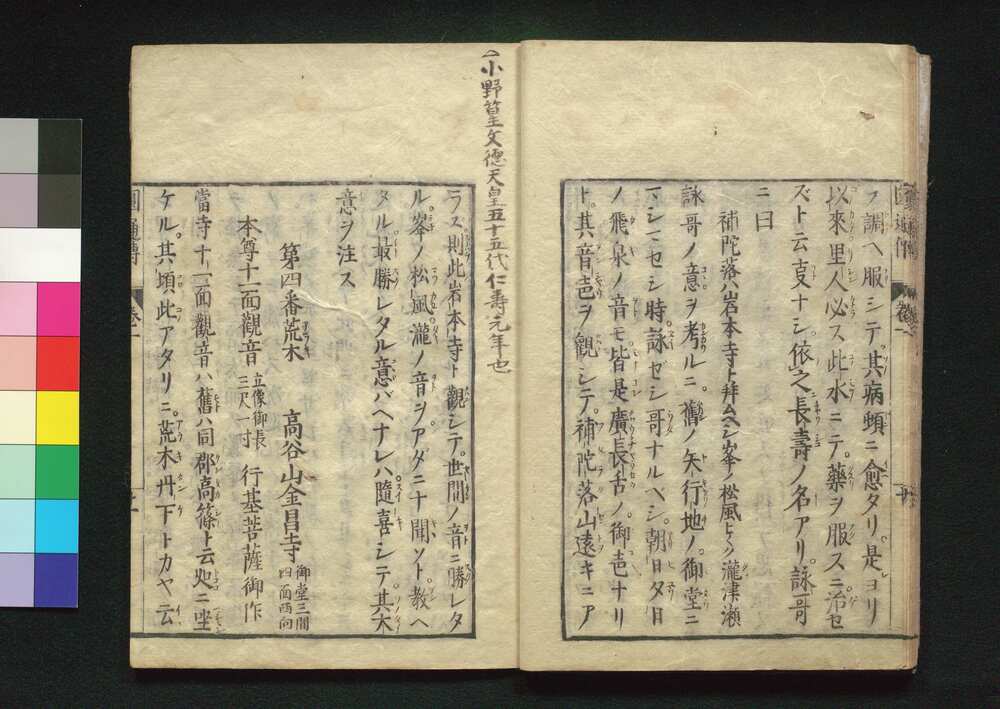 フ調ヘ服シテ其病頓ニ愈タリ是ヨリ
以來里人必ス此水ニテ藥ヲ服スニ治セ
ズト云支ナシ依之長壽ノ名アリ詠哥
ニ曰
補陀落ハ岩本寺ト拜ムベシ峯ノ松風ヒヾク瀧津瀬
詠哥ノ意ヲ考ルニ舊ノ矢行地ノ御堂ニ
マシマセシ時詠ゼシ哥ナルヘシ朝日夕日
ノ飛泉ノ音モ皆是廣長舌ノ御色ナリ
ト其音色ヲ觀シテ補陀落山遠キニア
小野篁文德天皇五十五代仁壽元年也
ラズ則此岩本寺ト觀シテ世間ノ音ニ勝レタ
ル峯ノ松風瀧ノ音ヲアダニナ聞ソト教ヘ
タル最勝レタル意バヘナレハ隨喜シテ其大
意ヲ注ス
第四番荒木 高谷山金昌寺 御堂三間四面酉向
本尊十一面觀音 立像御長三尺一寸 行基菩薩御作
當寺十一面觀音ハ舊ハ同郡高篠ト云処ニ坐
ケル其頃此アタリニ荒木丹下トカヤ云
圓通傳 卷一